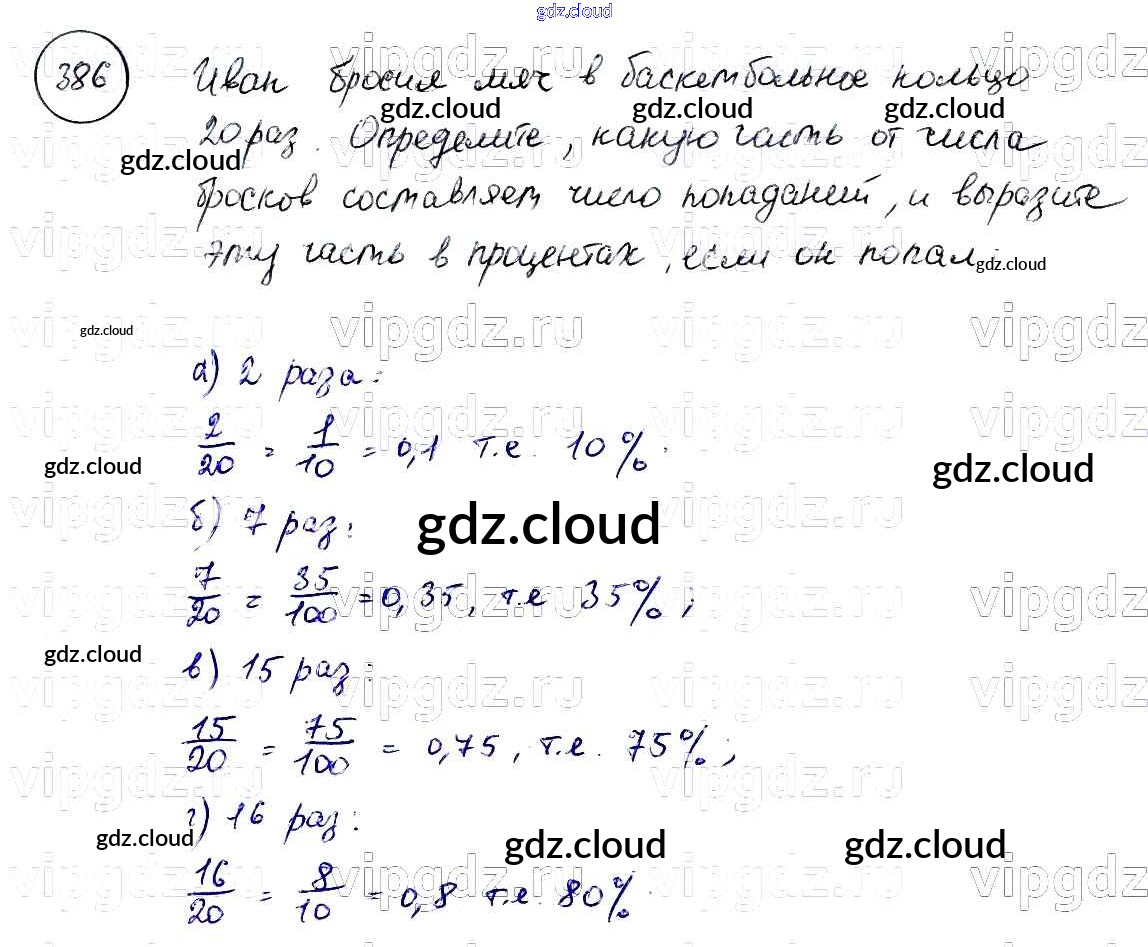 gdz.cloud
386 Иван бросил мяч в баскетбольное кольцо
gdz.cloud gdz.cloud gdz.cloud
20 раз. Определите, какую часть от числа
gdz.cloud
бросков составляет число попаданий, и выразите
эту часть в процентах, если он попал:
gdz.cloud
vipgdz.ru vipgdz.ru vipgdz.ru vipgdz
gdz.cloud
а) 2 раза:
2/20 = 1/10 = 0,1 т.е. 10%.
gdz.cloud gdz.cloud
б) 7 раз:
gdz.cloud
7/20 = 35/100 = 0,35, т.е 35%;
gdz.cloud
в) 15 раз:
15/20 = 75/100 = 0,75, т.е. 75%;
г) 16 раз:
gdz.cloud gdz.cloud gdz.cloud
16/20 = 8/10 = 0,8 т.е. 80%.